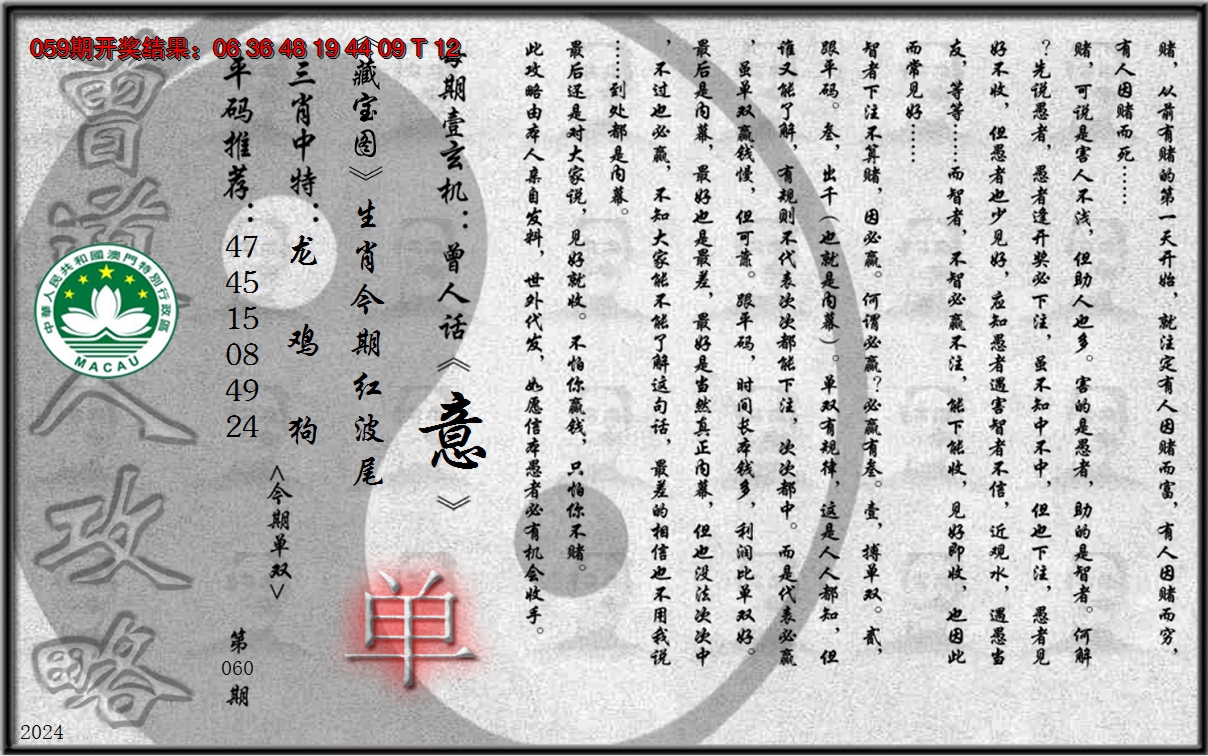 059期开奖结果：06 36 48 19 44 09 T 12
赌，从前有赌的第一天开始，就注定有人因赌而富，有人因赌而穷，
有人因赌而死……
赌，可说是害人不浅，但助人也多。害的是愚者，助的是智者。何解
？先说愚者，愚者逢开奖必下注，虽不知中不中，但也下注，愚者见
好不收，但愚者也少见好，应知愚者遇害智者不信，近观水，遇愚当
友，等等……而智者，不智必赢不注，能下能收，见好即收，也因此
而常见好……
智者下注不算赌，因必赢。何谓必赢？必赢有叁。壹，搏单双。贰，
跟平码。叁，出千（也就是内幕）。单双有规律，这是人人都知，但
谁又能了解，有规则不代表次次都能下注，次次都中。而是代表必赢
，虽单双赢钱慢，但可靠。跟平码，时间长本钱多，利润比单双好。
最后是内幕，最好也是最差，最好是当然真正内幕，但也没法次次中
，不过也必赢，不知大家能不能了解这句话，最差的相信也不用我说
……到处都是内幕。
最后还是对大家说，见好就收。不怕你赢钱，只怕你不赌。
此攻略由本人亲自发料，世外代发，如愿信本愚者必有机会收手。
每期壹玄机：曾人话《意》
《藏宝图》生肖今期红波尾
单
三肖中特：龙 鸡 狗
<今期单双>
平码推荐：47 45 15 08 49 24
第060期
曾道人攻略
中華人民共和國澳門特別行政區
MACAU
2024